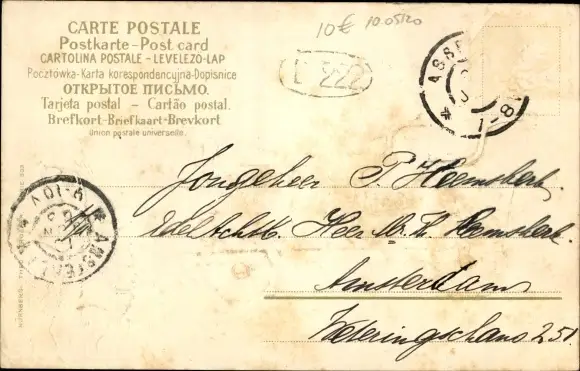 CARTE POSTALE
Postkarte – Post card
CARTOLINA POSTALE – LEVELEZO-LAP
Pocztówka – Karta korespondencyjna – Dopisnice
ОТКРЫТОЕ ПИСЬМО.
Tarjeta postal – Cartão postal.
Brefkort – Briefkaart – Brevkort
Union postale universelle.
10€ 10.05120
222
Jongeheer P. Heemskerk
Heer Heemskerk
Amsterdam
Weteringschans 251.
NÜRNBERG
AMSTERDAM